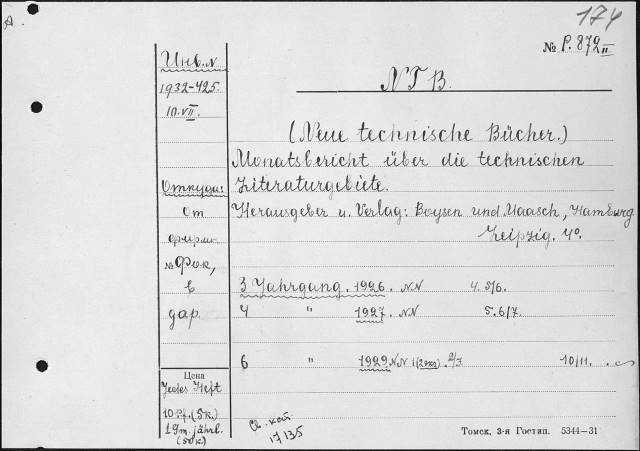 174
№ P. 879 II
N T B.
Инв. №
1932-425.
10.VII.
Откуда:
От
фирм.
№ Фок,
в
дар.
(Neue technische Bücher.)
Monatsbericht über die technischen
Literaturgebiete.
Herausgeber u. Verlag: Boysen und Maasch, Hamburg
Leipzig. 4°.
3 Jahrgang. 1926. N.N 4. 5/6.
4 " 1927. N.N 5. 6/7.
6 " 1929 N.N 1(2экз). 2/3 10/11.
Цена
Jedes Heft
10 Pf. (5к.)
1 Gm. jährl.
(50к.)
Св. кат.
17/135
Томск, 3-я Гостип. 5344—31